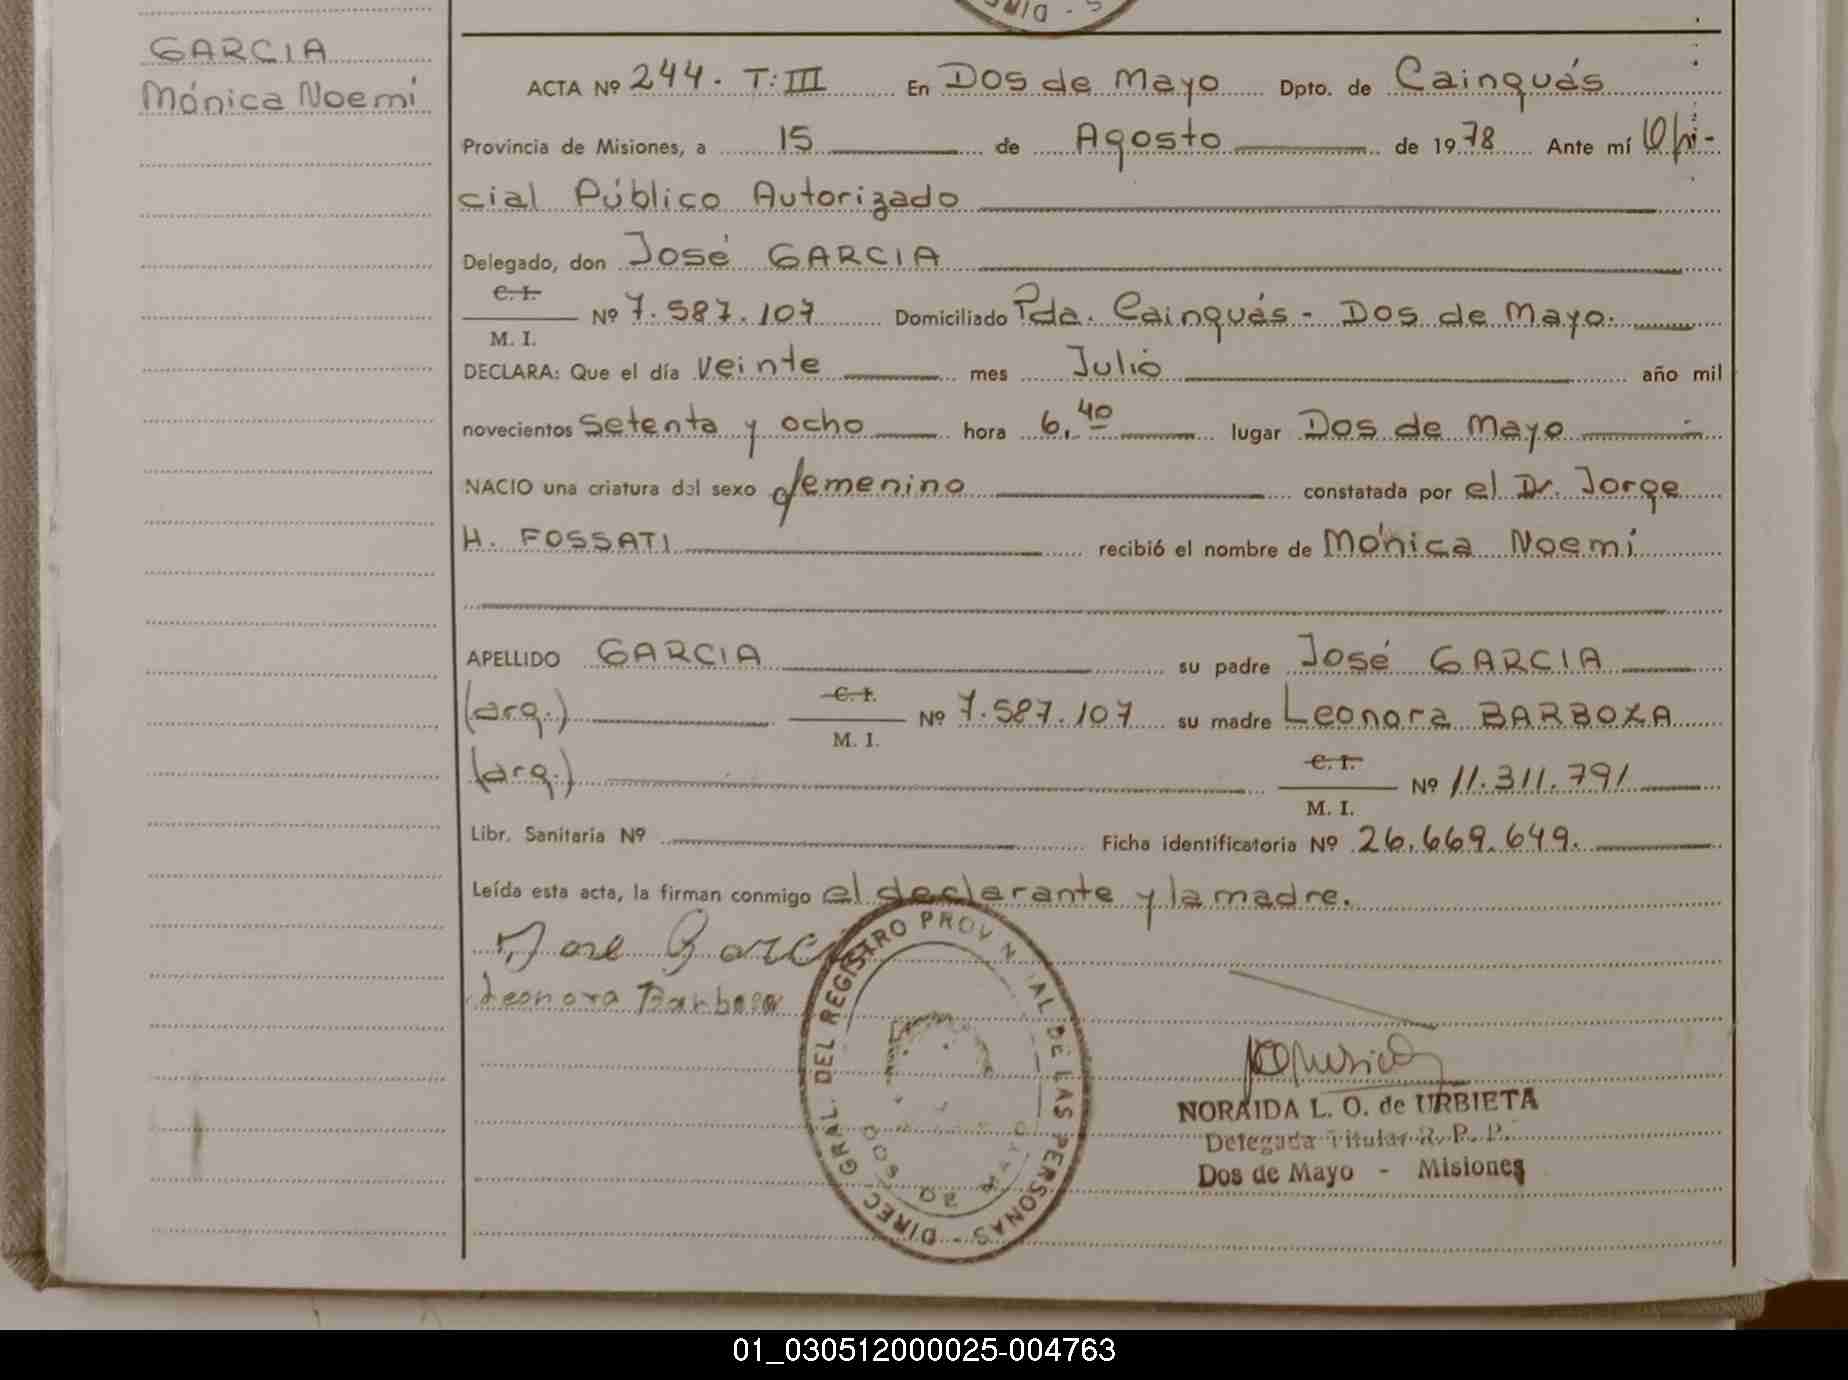 S - DIREC
GARCIA
Mónica Noemí
ACTA Nº 244. T: III En Dos de Mayo Dpto. de Cainguás
Provincia de Misiones, a 15 de Agosto de 1978 Ante mí Ofi-
cial Público Autorizado
Delegado, don José GARCIA
C. I.
M. I. Nº 7.587.107 Domiciliado Pda. Cainguás - Dos de Mayo.
DECLARA: Que el día veinte mes Julio año mil
novecientos setenta y ocho hora 6,40 lugar Dos de Mayo
NACIO una criatura del sexo femenino constatada por el Dr. Jorge
H. FOSSATI recibió el nombre de Mónica Noemí
APELLIDO GARCIA su padre José GARCIA
(arg.) C. I. M. I. Nº 7.587.107 su madre Leonora BARBOZA
(arg.) C. I. M. I. Nº 11.311.791
Libr. Sanitaria Nº Ficha identificatoria Nº 26.669.649.
Leída esta acta, la firman conmigo el declarante y la madre.
Jose Garcia
Leonora Barboza
DIREC. GRAL. DEL REGISTRO PROVINCIAL DE LAS PERSONAS -
DOS DE MAYO
NORAIDA L. O. de URBIETA
Delegada Titular R. P. P.
Dos de Mayo - Misiones
01_030512000025-004763